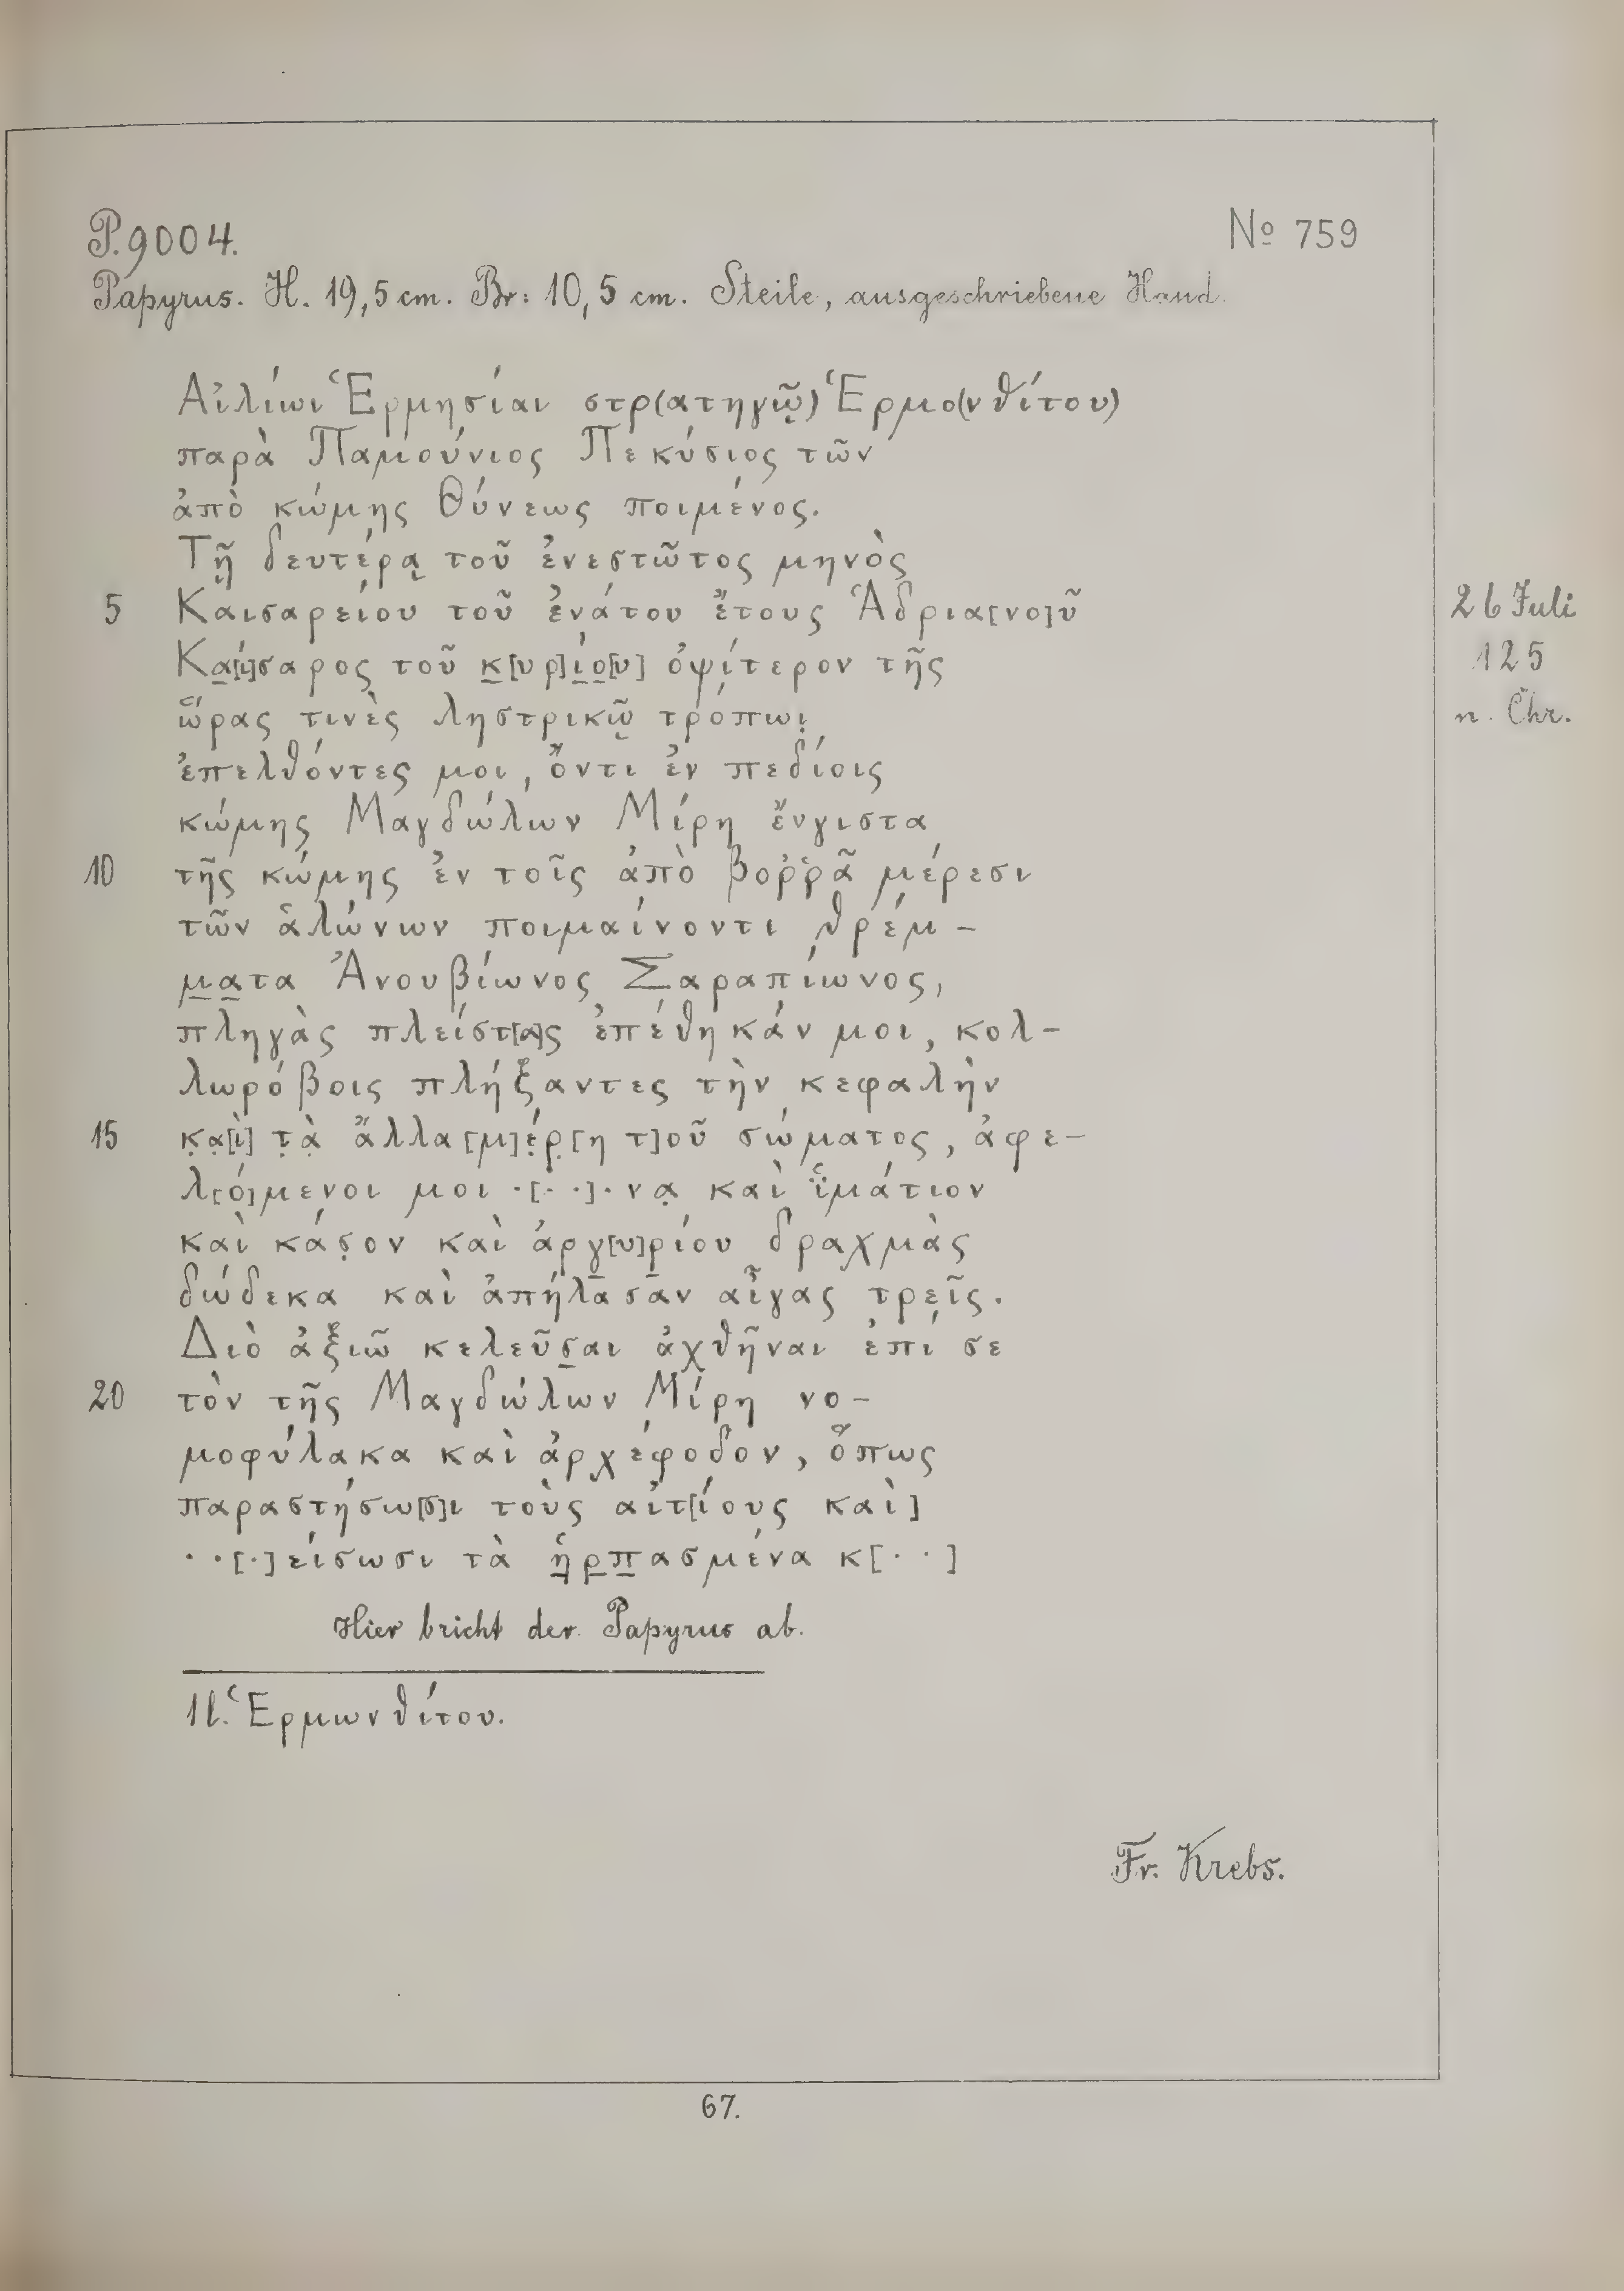 P. 9004.
Nº 759
Papyrus. H. 19,5 cm. Br: 10,5 cm. Steile, ausgeschriebene Hand.
Αἰλίωι Ἑρμησίαι στρ(ατηγῷ) Ἑρμο(νθίτου)
παρὰ Παμούνιος Πεκύσιος τῶν
ἀπὸ κώμης Θύνεως ποιμένος.
Τῇ δευτέρᾳ τοῦ ἐνεστῶτος μηνὸς
5 Καισαρείου τοῦ ἐνάτου ἔτους Ἁδρια[νο]ῦ
26 Juli
Κα̲[ί]σαρος τοῦ κ̲[υρ]ί̲ο̲[υ] ὀψίτερον τῆς
125
ὥρας τινὲς ληστρικῷ τρόπωι̣
n. Chr.
ἐπελθόντες μοι, ὄντι ἐν πεδίοις
κώμης Μαγδώλων Μίρη ἔνγιστα
10 τῆς κώμης ἐν τοῖς ἀπὸ βοῤῥᾶ μέρεσι
τῶν ἁλώνων ποιμαίνοντι θρέμ-
μ̲α̲τα Ἀνουβίωνος Σαραπίωνος,
πληγὰς πλείστ[α]ς ἐπέθηκάν μοι, κολ-
λωρόβοις πλήξαντες τὴν κεφαλὴν
15 κ̣α̣[ὶ] τ̣ὰ̣ ἄλλα [μ]έ̣ρ̣[η τ]οῦ σώματος, ἀφε-
λ[ό]μενοι μοι ·[· ·]· να̣ καὶ ἱ̈μάτιον
καὶ κάσ̣ον καὶ ἀργ[υ]ρίου δραχμὰς
δώδεκα καὶ ἀπήλασαν αἶγας τρεῖς.
Διὸ ἀξιῶ κελεῦσ̲αι ἀχθῆναι ἐπί σε
20 τὸν τῆς Μαγδώλων Μίρη νο-
μοφύλακα καὶ ἀρχέφοδον, ὅπως
παραστήσω[σ]ι τοὺς αἰτ[ίους καὶ]
· ·[·]είσωσι τὰ ἡ̲ρ̲π̲ασμένα κ[· · ]
Hier bricht der Papyrus ab.
1 l. Ἑρμωνθίτου.
Fr. Krebs.
67.